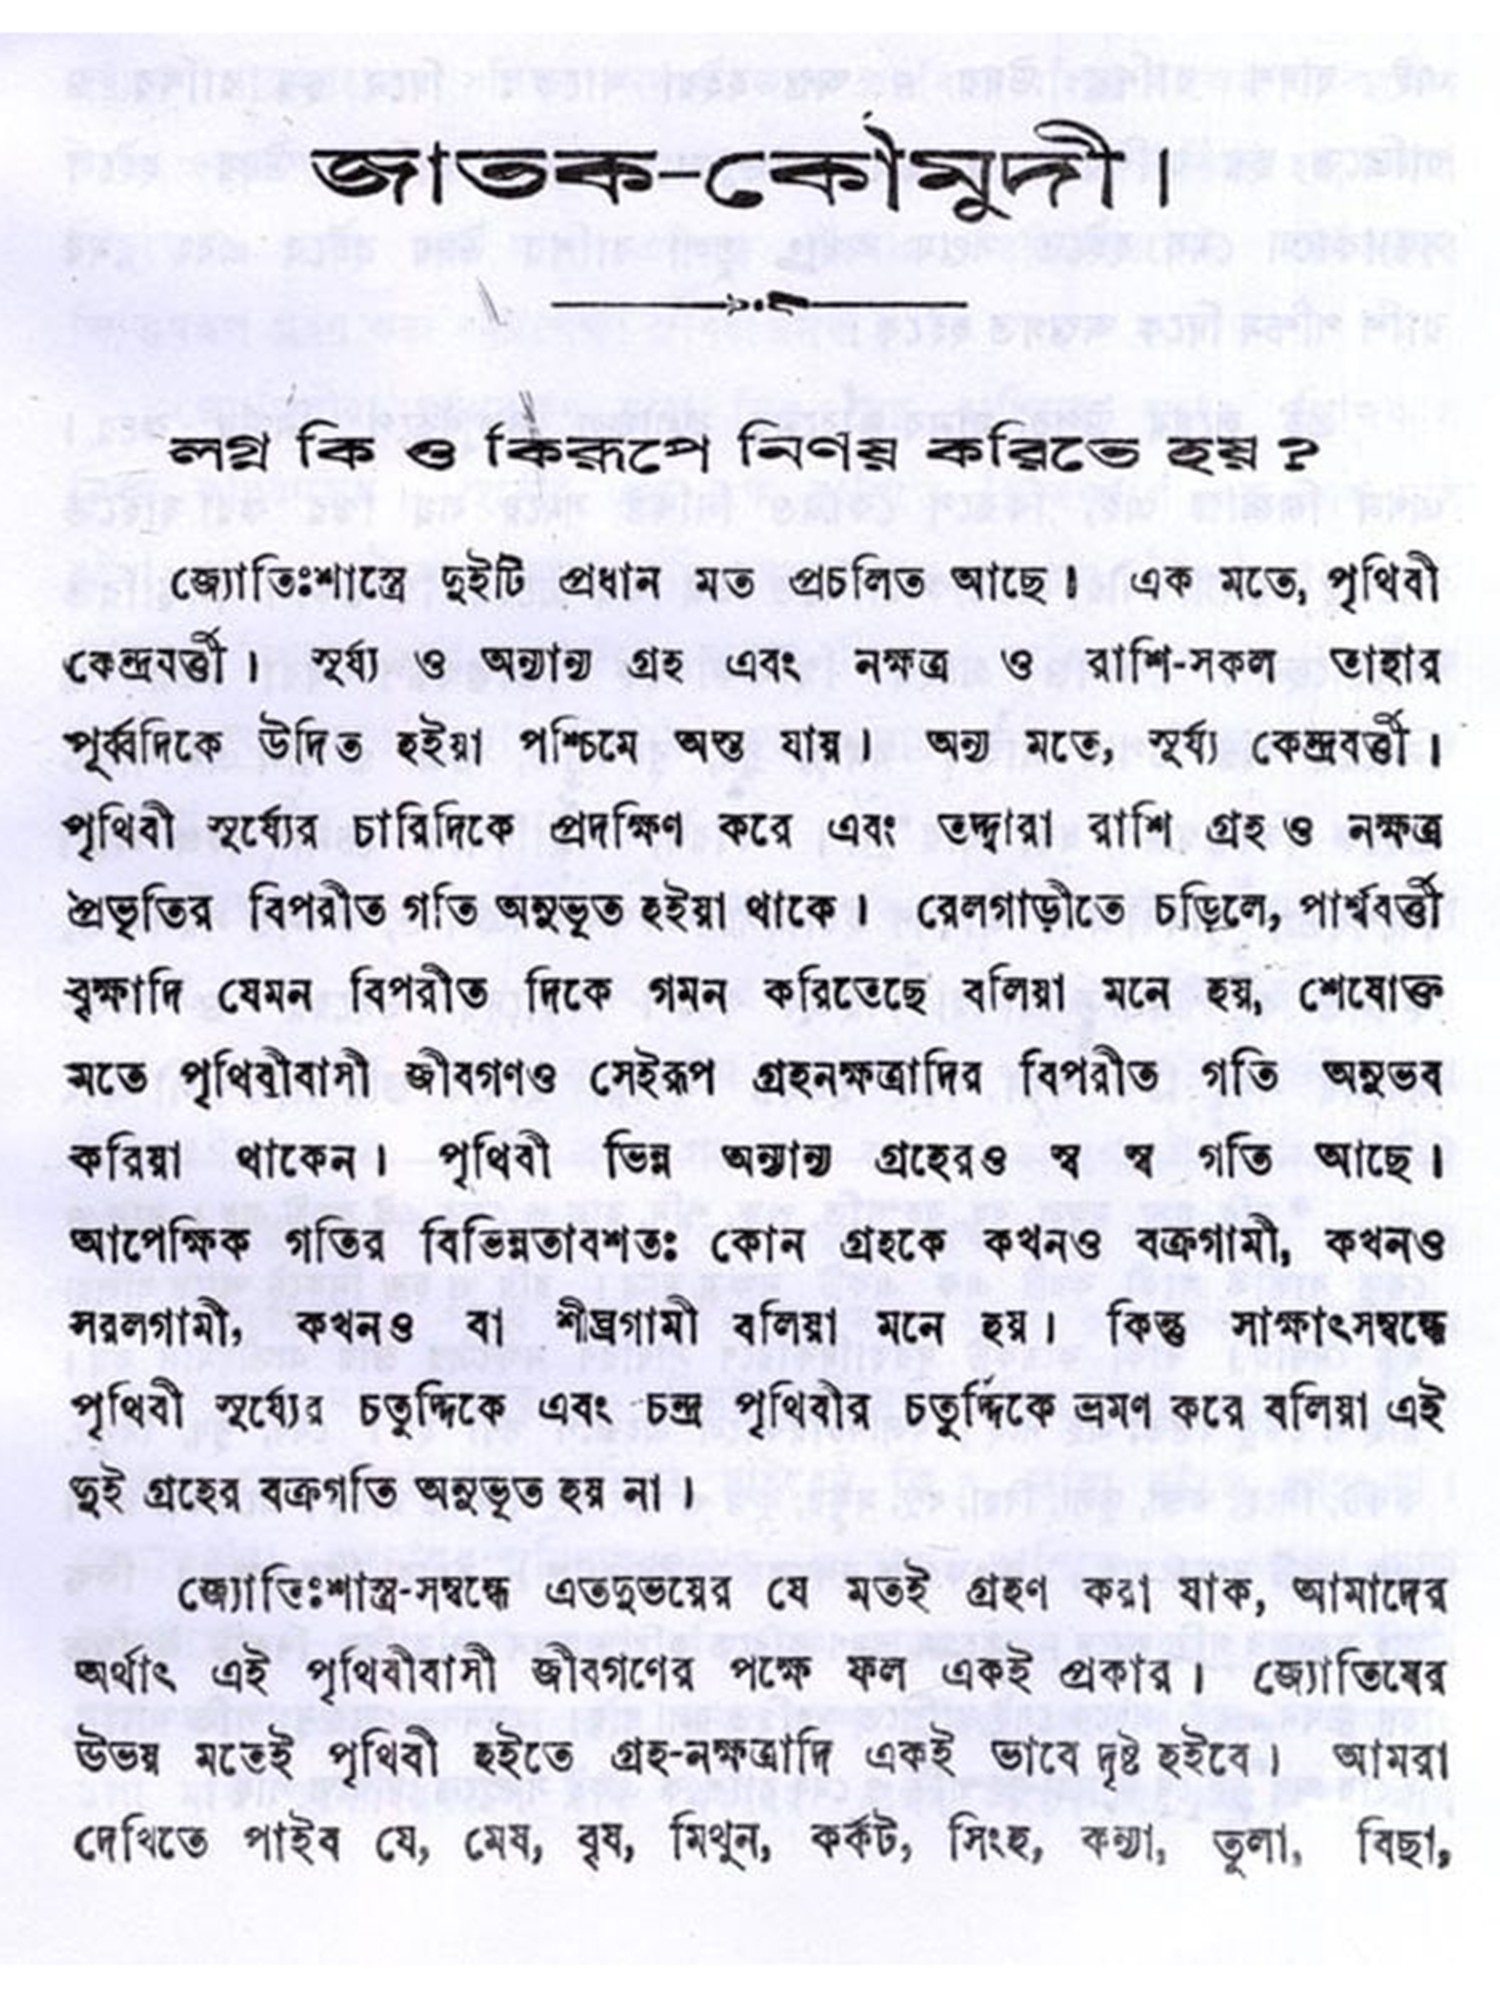 জাতক-কৌমুদী।
লগ্ন কি ও কিরূপে নির্ণয় করিতে হয় ?
জ্যোতিঃশাস্ত্রে দুইটি প্রধান মত প্রচলিত আছে। এক মতে, পৃথিবী
কেন্দ্রবর্ত্তী। সূর্য্য ও অন্যান্য গ্রহ এবং নক্ষত্র ও রাশি-সকল তাহার
পূর্ব্বদিকে উদিত হইয়া পশ্চিমে অস্ত যায়। অন্য মতে, সূর্য্য কেন্দ্রবর্ত্তী।
পৃথিবী সূর্য্যের চারিদিকে প্রদক্ষিণ করে এবং তদ্দ্বারা রাশি গ্রহ ও নক্ষত্র
প্রভৃতির বিপরীত গতি অনুভূত হইয়া থাকে। রেলগাড়ীতে চড়িলে, পার্শ্ববর্ত্তী
বৃক্ষাদি যেমন বিপরীত দিকে গমন করিতেছে বলিয়া মনে হয়, শেষোক্ত
মতে পৃথিবীবাসী জীবগণও সেইরূপ গ্রহনক্ষত্রাদির বিপরীত গতি অনুভব
করিয়া থাকেন। পৃথিবী ভিন্ন অন্যান্য গ্রহেরও স্ব স্ব গতি আছে।
আপেক্ষিক গতির বিভিন্নতাবশতঃ কোন গ্রহকে কখনও বক্রগামী, কখনও
সরলগামী, কখনও বা শীঘ্রগামী বলিয়া মনে হয়। কিন্তু সাক্ষাৎসম্বন্ধে
পৃথিবী সূর্য্যের চতুর্দ্দিকে এবং চন্দ্র পৃথিবীর চতুর্দ্দিকে ভ্রমণ করে বলিয়া এই
দুই গ্রহের বক্রগতি অনুভূত হয় না।
জ্যোতিঃশাস্ত্র-সম্বন্ধে এতদুভয়ের যে মতই গ্রহণ করা যাক, আমাদের
অর্থাৎ এই পৃথিবীবাসী জীবগণের পক্ষে ফল একই প্রকার। জ্যোতিষের
উভয় মতেই পৃথিবী হইতে গ্রহ-নক্ষত্রাদি একই ভাবে দৃষ্ট হইবে। আমরা
দেখিতে পাইব যে, মেষ, বৃষ, মিথুন, কর্কট, সিংহ, কন্যা, তুলা, বিছা,